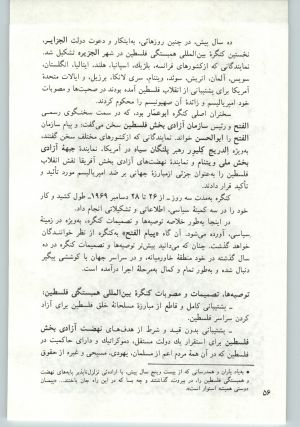 ده سال پیش، در چنین روزهائی، به‌ابتکار و دعوت دولت الجزایر،
نخستین کنگرهٔ بین‌المللی همبستگی فلسطین در شهر الجزیره تشکیل شد.
نمایندگانی که ازکشورهای فرانسه، بلژیک، اسپانیا، هلند، ایتالیا، انگلستان،
سویس، آلمان، اتریش، سوئد، ویتنام، سری لانکا، برزیل، و ایالات متحدهٔ
آمریکا برای پشتیبانی از انقلاب فلسطین آمده بودند در صحبت‌ها و مصوبات
خود امپریالیسم و زائدهٔ آن صهیونیسم را محکوم کردند.
سخنران اصلی کنگره ابوعمار بود که در سمت سخنگوی رسمی
الفتح و رئیس سازمان آزادی بخش فلسطین سخن می‌گفت، و پیام سازمان
الفتح را ابوالحسن خواند. نمایندگانی که ازکشورهای مختلف سخن گفتند،
به‌ویژه الدریج کلیور رهبر پلنگان سیاه در آمریکا، نمایندهٔ جبههٔ آزادی
بخش ملی ویتنام و نمایندهٔ نهضت‌های آزادی بخش آفریقا نقش انقلاب
فلسطین را به‌عنوان جزئی ازمبارزهٔ جهانی بر ضد امپریالیسم مورد تأیید و
تأکید قرار دادند.
کنگره به‌مدت سه روز ـ از ۲۶ تا ۲۸ دسامبر ۱۹۶۹ـ طول کشید و کار
خود را در سه کمیتهٔ سیاسی، اطلاعاتی و تشکیلاتی انجام داد.
در اینجا به‌طور خلاصه توصیه‌ها و تصمیمات کنگره، به‌ویژه در زمینهٔ
سیاسی، آورده می‌شود. آن گاه «پیام الفتح» به‌کنگره از نظر خوانندگان
خواهد گذشت. چنان که می‌دانید بیش‌تر توصیه‌ها و تصمیمات کنگره در ده
سال گذشته در خود منطقهٔ خاورمیانه، و در سراسر جهان با کوششی پیگیر
دنبال شده و به‌طور تمام و کمال به‌مرحلهٔ اجرا درآمده است.
توصیه‌ها، تصمیمات و مصوبات کنگرهٔ بین‌المللی همبستگی فلسطین:
ـ پشتیبانی کامل و قاطع از مبارزهٔ مسلحانهٔ خلق فلسطین برای آزاد
کردن سراسر فلسطین.
ـ پشتیبانی بدون قید و شرط از هدف‌های نهضت آزادی بخش
فلسطین برای استقرار یک دولت مستقل، دموکراتیک و دارای حاکمیت در
فلسطین که در آن همهٔ مردم اعم از مسلمان، یهودی، مسیحی و غیره از حقوق
* بیاد یاران و همدرسانی که از بیست وپنج سال پیش، با اراده‌ئی تزلزل‌ناپذیر پایه‌های نهضت
و همبستگی فلسطین را، در بیروت، گذاشتند و چه بسا که در این راه جان باختند. ـبیمان
دوستی همیشه استوار است».
۵۶